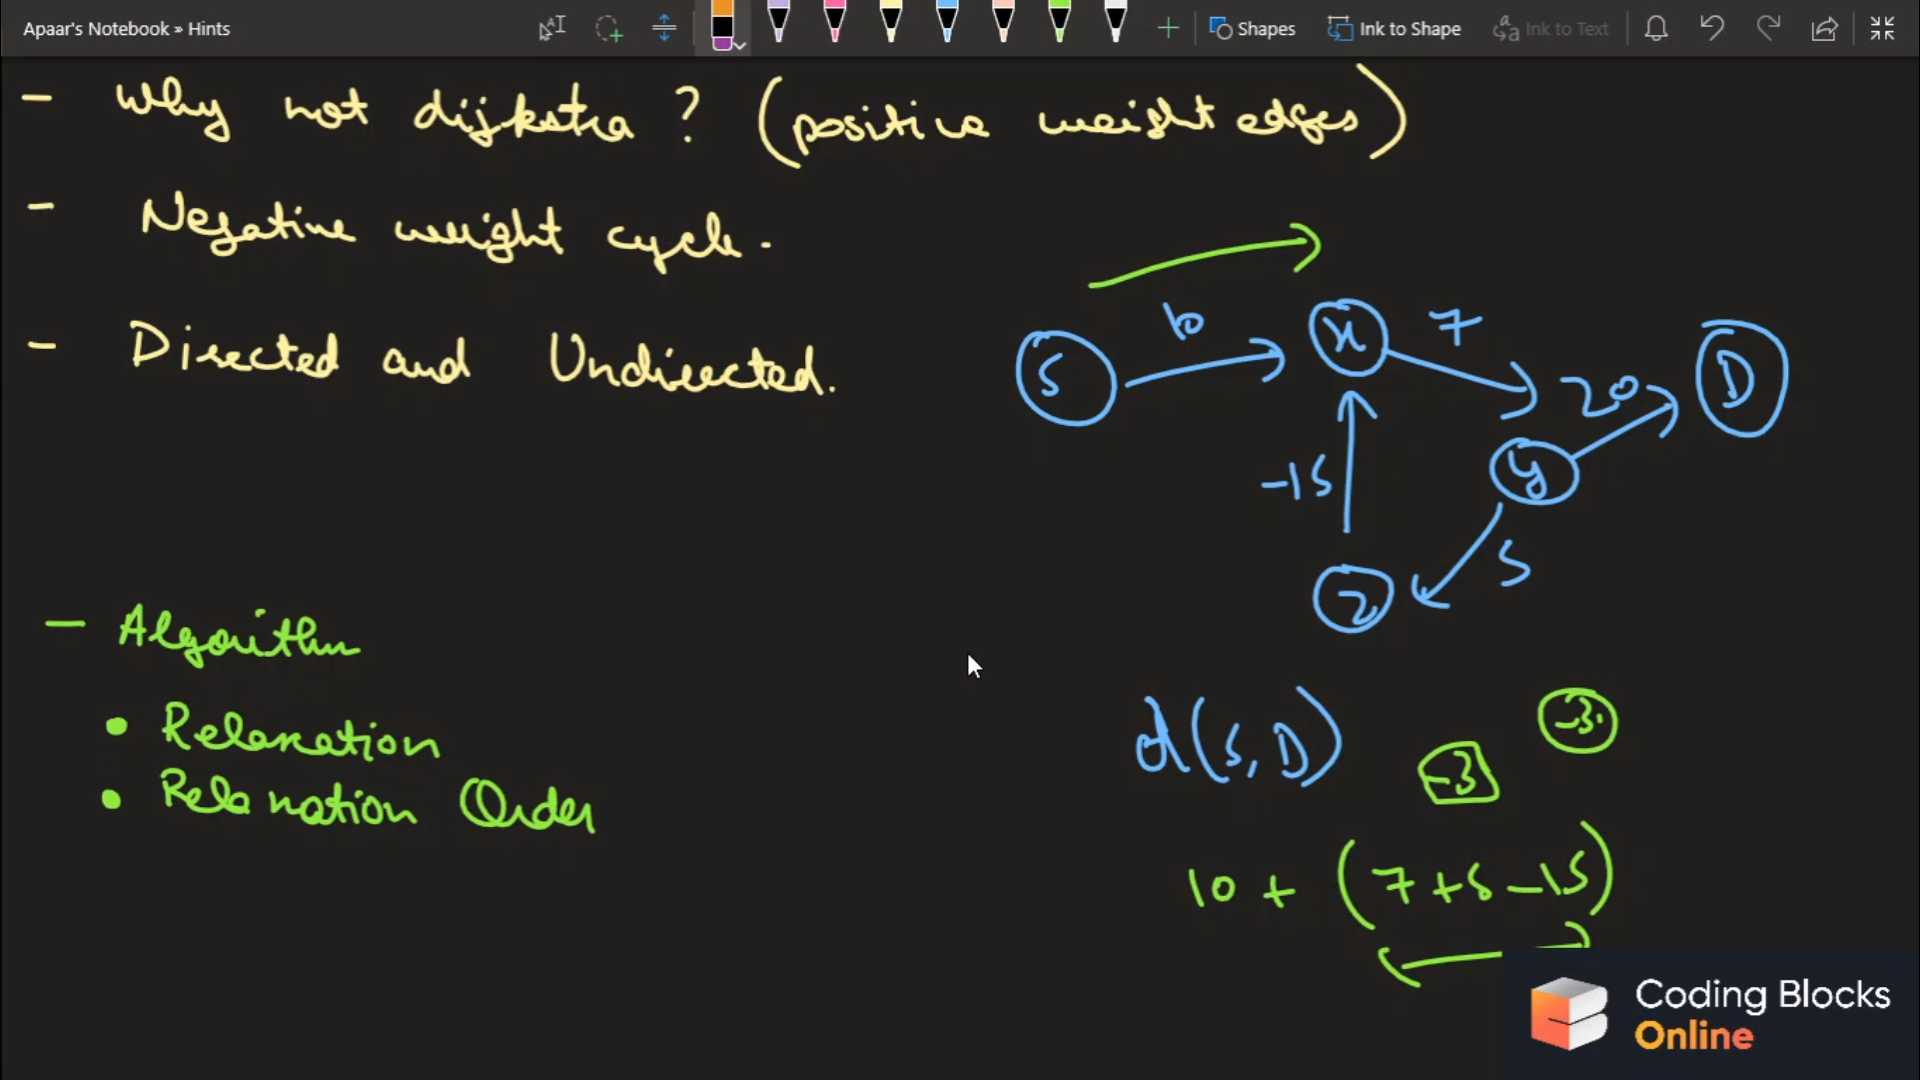 Apaar's Notebook » Hints
Shapes
Ink to Shape
Ink to Text
- Why not dijkstra ? (positive weight edges)
- Negative weight cycle.
- Directed and Undirected.
S
10
x
7
20
D
-15
y
5
z
- Algorithm
• Relaxation
• Relaxation Order
d(S, D)
-3
-3
10 + (7+5-15)
Coding Blocks
Online